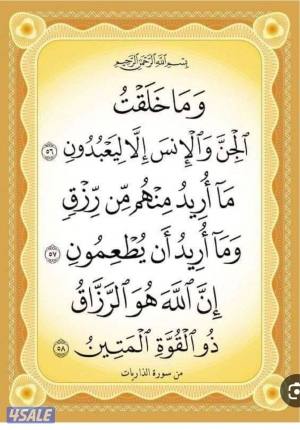 بِسْمِ اللَّهِ الرَّحْمَٰنِ الرَّحِيمِ
وَمَا خَلَقْتُ
الْجِنَّ وَالْإِنسَ إِلَّا لِيَعْبُدُونِ ٥٦
مَا أُرِيدُ مِنْهُم مِّن رِّزْقٍ
وَمَا أُرِيدُ أَن يُطْعِمُونِ ٥٧
إِنَّ اللَّهَ هُوَ الرَّزَّاقُ
ذُو الْقُوَّةِ الْمَتِينُ ٥٨
من سورة الذاريات
4SALE